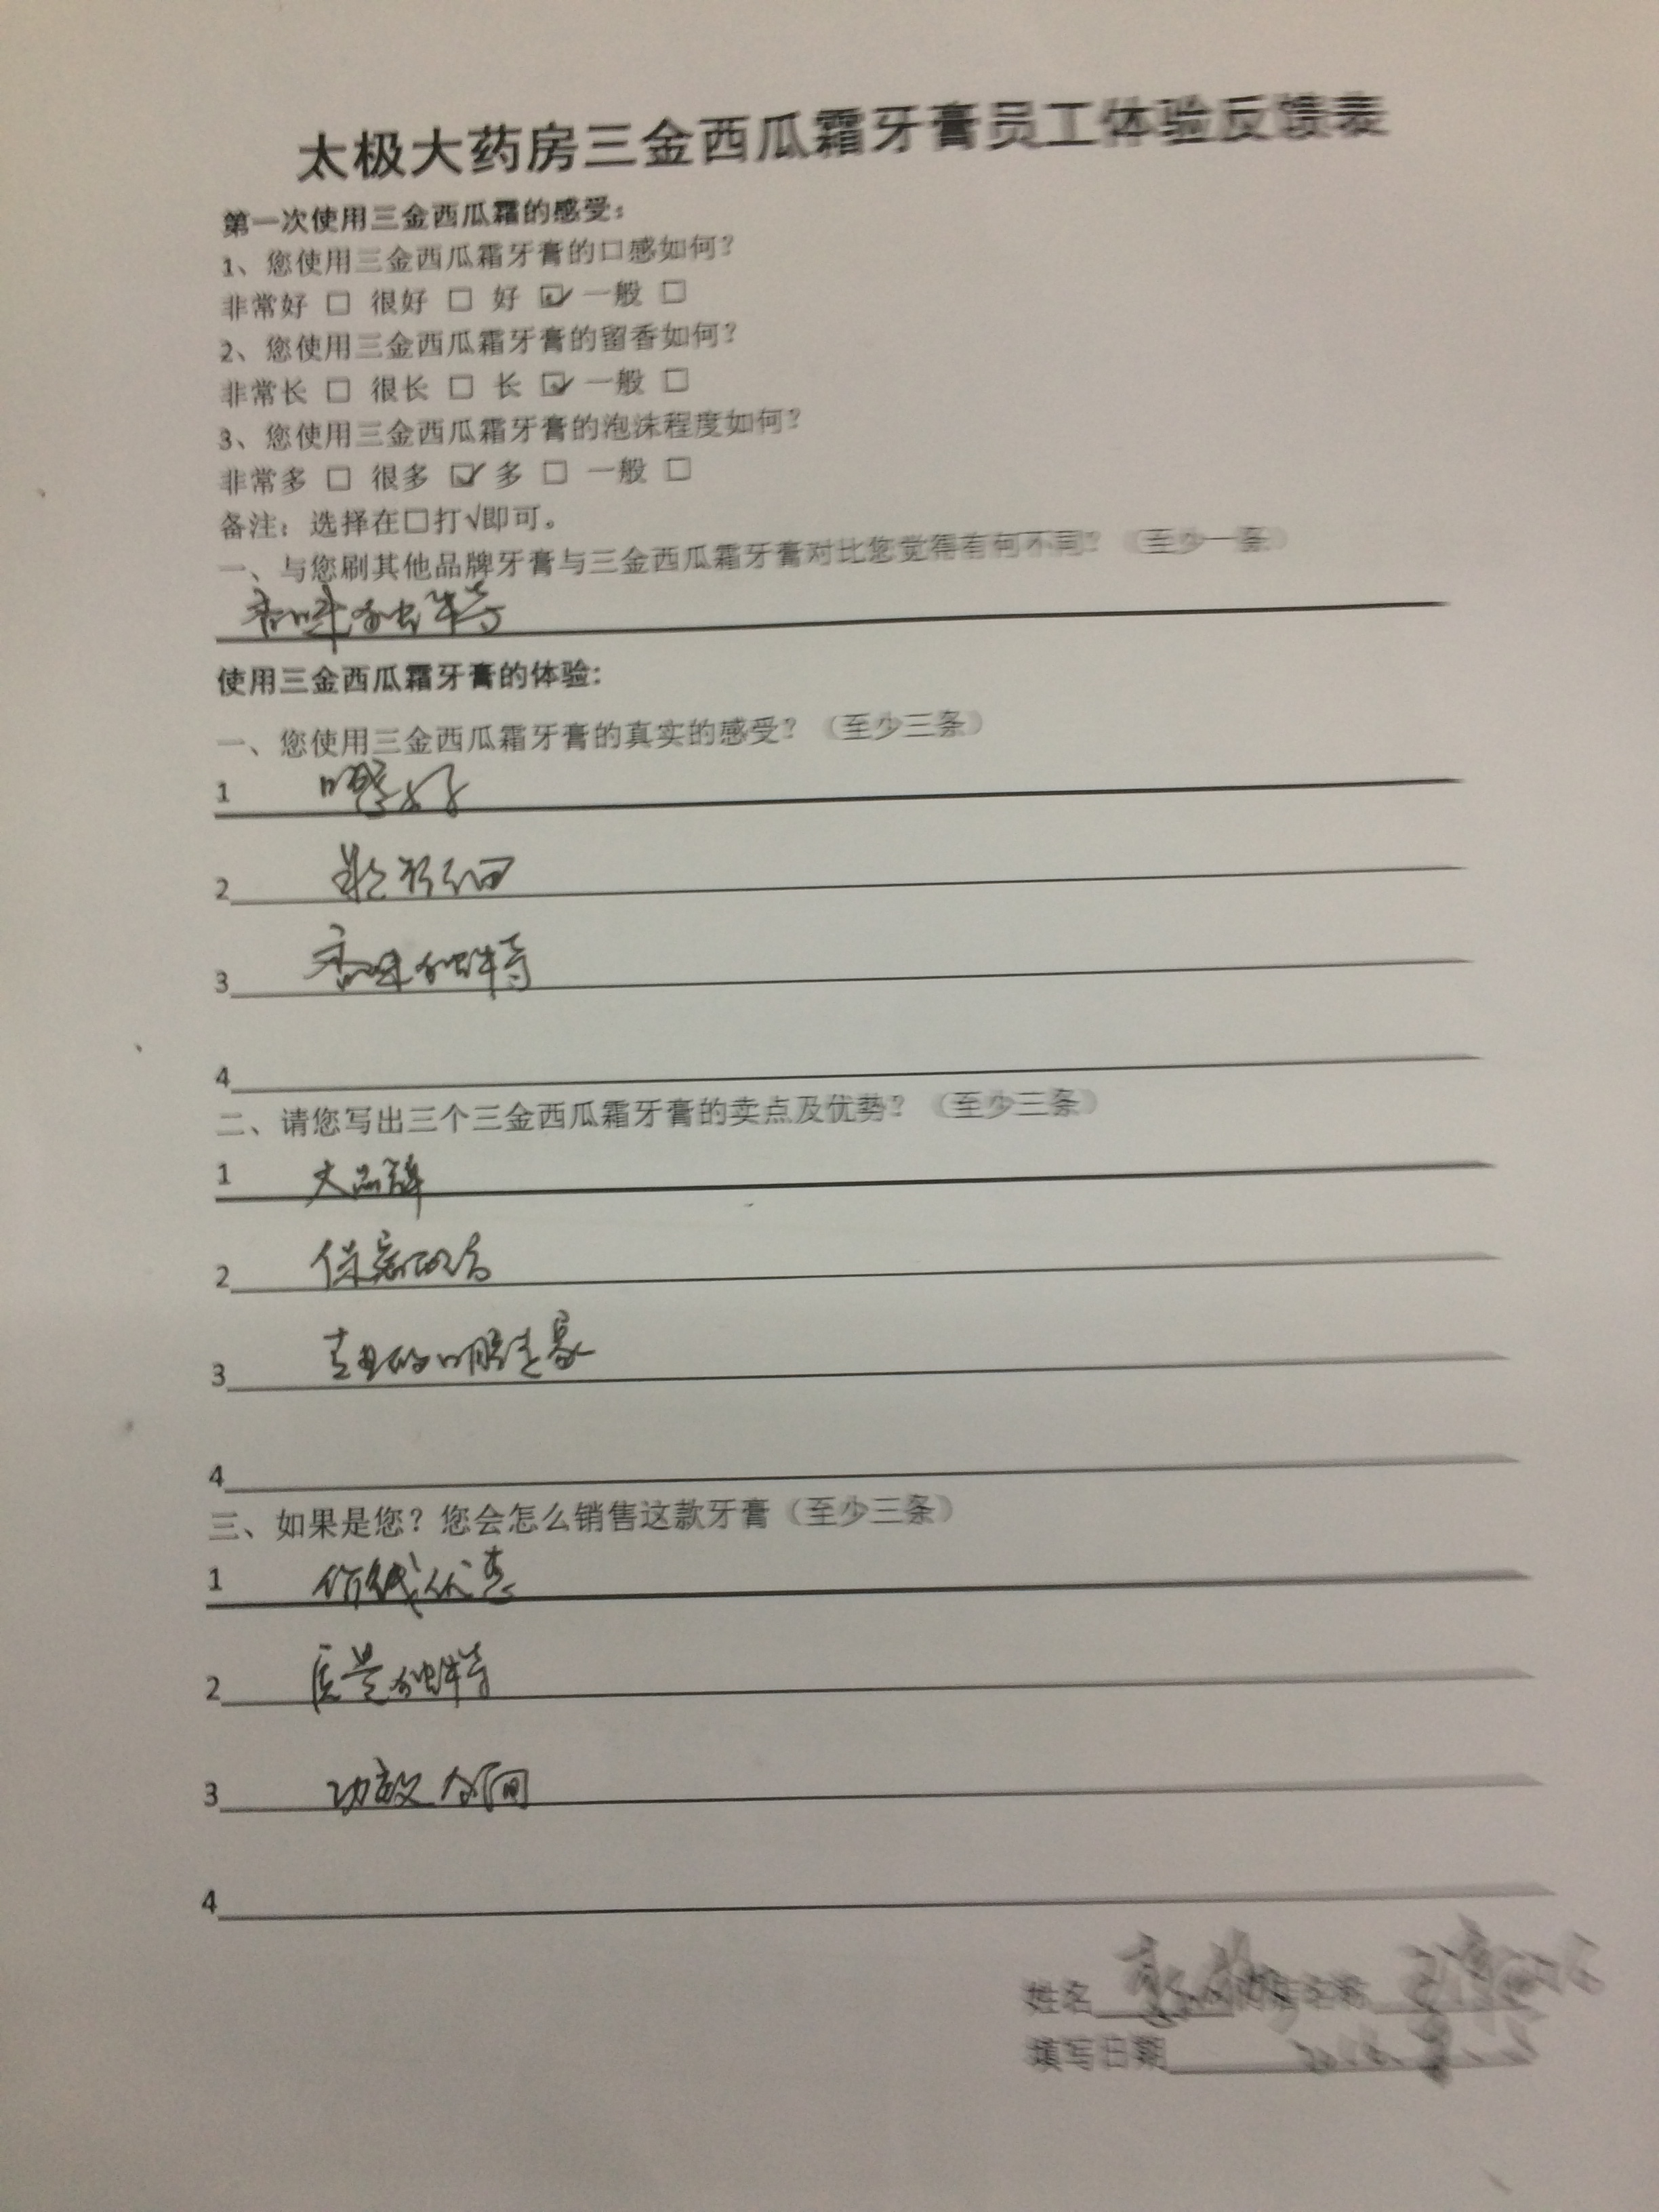 太极大药房三金西瓜霜牙膏员工体验反馈表
第一次使用三金西瓜霜的感受：
1、您使用三金西瓜霜牙膏的口感如何？
非常好 □ 很好 □ 好 ☑ 一般 □
2、您使用三金西瓜霜牙膏的留香如何？
非常长 □ 很长 □ 长 ☑ 一般 □
3、您使用三金西瓜霜牙膏的泡沫程度如何？
非常多 □ 很多 ☑ 多 □ 一般 □
备注：选择在□打√即可。
一、与您刷其他品牌牙膏与三金西瓜霜牙膏对比您觉得有何不同？（至少一条）
香味独特
使用三金西瓜霜牙膏的体验：
一、您使用三金西瓜霜牙膏的真实的感受？（至少三条）
1 口感好
2
3 香味独特
4
二、请您写出三个三金西瓜霜牙膏的卖点及优势？（至少三条）
1 大品牌
2
3
4
三、如果是您？您会怎么销售这款牙膏（至少三条）
1 价钱优惠
2 质量独特
3 功效
4
姓名
填写日期